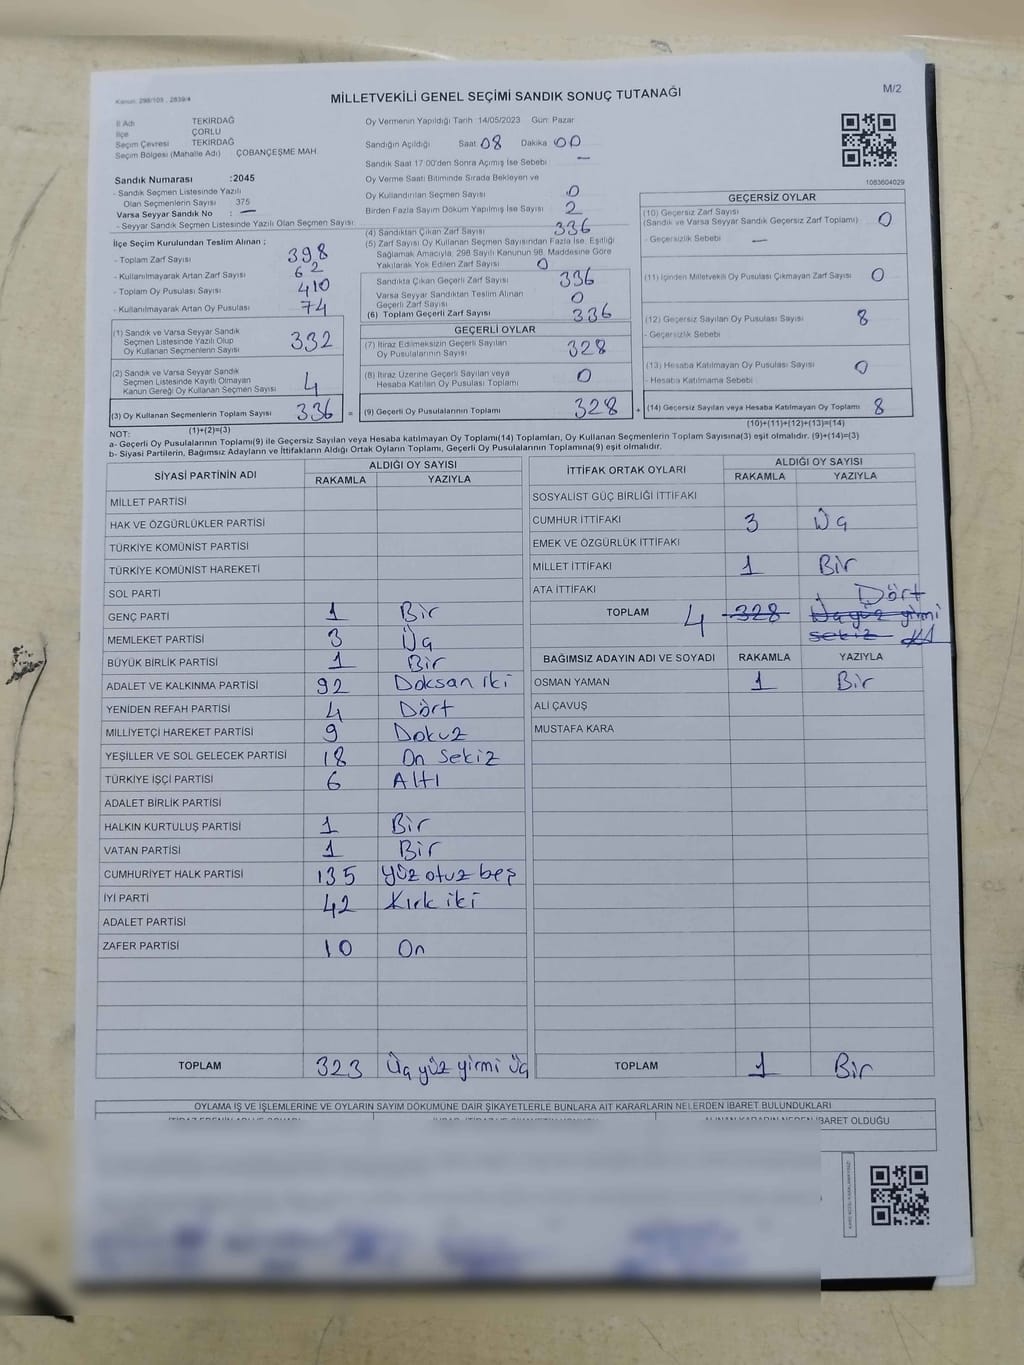 Kanun: 298/105 , 2839/4
MİLLETVEKİLİ GENEL SEÇİMİ SANDIK SONUÇ TUTANAĞI
M/2
İl Adı TEKİRDAĞ
İlçe ÇORLU
Seçim Çevresi TEKİRDAĞ
Seçim Bölgesi (Mahalle Adı) ÇOBANÇEŞME MAH.
Sandık Numarası :2045
- Sandık Seçmen Listesinde Yazılı
Olan Seçmenlerin Sayısı 375
Varsa Seyyar Sandık No : —
- Seyyar Sandık Seçmen Listesinde Yazılı Olan Seçmen Sayısı:
Oy Vermenin Yapıldığı Tarih :14/05/2023 Gün: Pazar
Sandığın Açıldığı Saat 08 Dakika 00
Sandık Saat 17:00'den Sonra Açmış İse Sebebi —
Oy Verme Saati Bitiminde Sırada Bekleyen ve
Oy Kullandırılan Seçmen Sayısı 0
Birden Fazla Sayım Döküm Yapılmış İse Sayısı 2
(4) Sandıktan Çıkan Zarf Sayısı 336
(5) Zarf Sayısı Oy Kullanan Seçmen Sayısından Fazla İse, Eşitliği
Sağlamak Amacıyla; 298 Sayılı Kanunun 98. Maddesine Göre
Yakılarak Yok Edilen Zarf Sayısı 0
1083604029
İlçe Seçim Kurulundan Teslim Alınan ;
- Toplam Zarf Sayısı 398
- Kullanılmayarak Artan Zarf Sayısı 62
- Toplam Oy Pusulası Sayısı 410
- Kullanılmayarak Artan Oy Pusulası 74
(1) Sandık ve Varsa Seyyar Sandık
Seçmen Listesinde Yazılı Olup
Oy Kullanan Seçmenlerin Sayısı 332
(2) Sandık ve Varsa Seyyar Sandık
Seçmen Listesinde Kayıtlı Olmayan
Kanun Gereği Oy Kullanan Seçmen Sayısı 4
(3) Oy Kullanan Seçmenlerin Toplam Sayısı 336 =
(1)+(2)=(3)
Sandıkta Çıkan Geçerli Zarf Sayısı 336
Varsa Seyyar Sandıktan Teslim Alınan
Geçerli Zarf Sayısı 0
(6) Toplam Geçerli Zarf Sayısı 336
GEÇERLİ OYLAR
(7) İtiraz Edilmeksizin Geçerli Sayılan
Oy Pusulalarının Sayısı 328
(8) İtiraz Üzerine Geçerli Sayılan veya
Hesaba Katılan Oy Pusulası Toplamı 0
(9) Geçerli Oy Pusulalarının Toplamı 328 +
GEÇERSİZ OYLAR
(10) Geçersiz Zarf Sayısı
(Sandık ve Varsa Seyyar Sandık Geçersiz Zarf Toplamı) 0
- Geçersizlik Sebebi —
(11) İçinden Milletvekili Oy Pusulası Çıkmayan Zarf Sayısı 0
(12) Geçersiz Sayılan Oy Pusulası Sayısı 8
- Geçersizlik Sebebi
(13) Hesaba Katılmayan Oy Pusulası 0
- Hesaba Katılmama Sebebi
(14) Geçersiz Sayılan veya Hesaba Katılmayan Oy Toplamı 8
(10)+(11)+(12)+(13)=(14)
NOT:
a- Geçerli Oy Pusulalarının Toplamı(9) ile Geçersiz Sayılan veya Hesaba katılmayan Oy Toplamı(14) Toplamları, Oy Kullanan Seçmenlerin Toplam Sayısına(3) eşit olmalıdır. (9)+(14)=(3)
b- Siyasi Partilerin, Bağımsız Adayların ve İttifakların Aldığı Ortak Oyların Toplamı, Geçerli Oy Pusulalarının Toplamına(9) eşit olmalıdır.
SİYASİ PARTİNİN ADI ALDIĞI OY SAYISI
RAKAMLA YAZIYLA
MİLLET PARTİSİ
HAK VE ÖZGÜRLÜKLER PARTİSİ
TÜRKİYE KOMÜNİST PARTİSİ
TÜRKİYE KOMÜNİST HAREKETİ
SOL PARTİ
GENÇ PARTİ 1 Bir
MEMLEKET PARTİSİ 3 Üç
BÜYÜK BİRLİK PARTİSİ 1 Bir
ADALET VE KALKINMA PARTİSİ 92 Doksan iki
YENİDEN REFAH PARTİSİ 4 Dört
MİLLİYETÇİ HAREKET PARTİSİ 9 Dokuz
YEŞİLLER VE SOL GELECEK PARTİSİ 18 On Sekiz
TÜRKİYE İŞÇİ PARTİSİ 6 Altı
ADALET BİRLİK PARTİSİ
HALKIN KURTULUŞ PARTİSİ 1 Bir
VATAN PARTİSİ 1 Bir
CUMHURİYET HALK PARTİSİ 135 Yüz otuz beş
İYİ PARTİ 42 Kırk iki
ADALET PARTİSİ
ZAFER PARTİSİ 10 On
TOPLAM 323 Üç yüz yirmi üç
İTTİFAK ORTAK OYLARI ALDIĞI OY SAYISI
RAKAMLA YAZIYLA
SOSYALİST GÜÇ BİRLİĞİ İTTİFAKI
CUMHUR İTTİFAKI 3 Üç
EMEK VE ÖZGÜRLÜK İTTİFAKI
MİLLET İTTİFAKI 1 Bir
ATA İTTİFAKI
Dört
TOPLAM 4 328 Üç yüz yirmi
sekiz
BAĞIMSIZ ADAYIN ADI VE SOYADI RAKAMLA YAZIYLA
OSMAN YAMAN 1 Bir
ALİ ÇAVUŞ
MUSTAFA KARA
TOPLAM 1 Bir
OYLAMA İŞ VE İŞLEMLERİNE VE OYLARIN SAYIM DÖKÜMÜNE DAİR ŞİKAYETLERLE BUNLARA AİT KARARLARIN NELERDEN İBARET BULUNDUKLARI
İBARET OLDUĞU